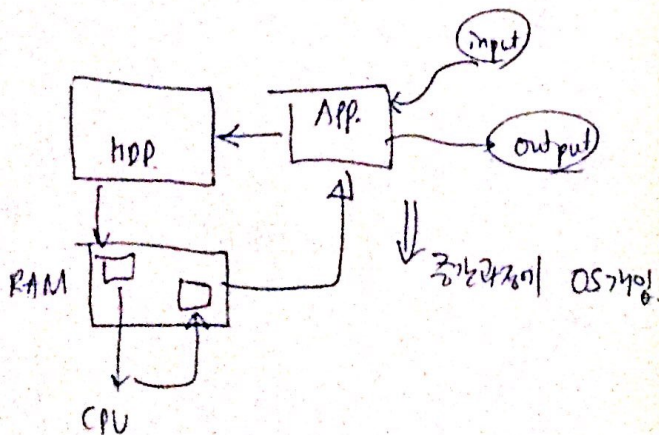 input
App.
HDD.
output
RAM
중간과정에 OS개입.
CPU